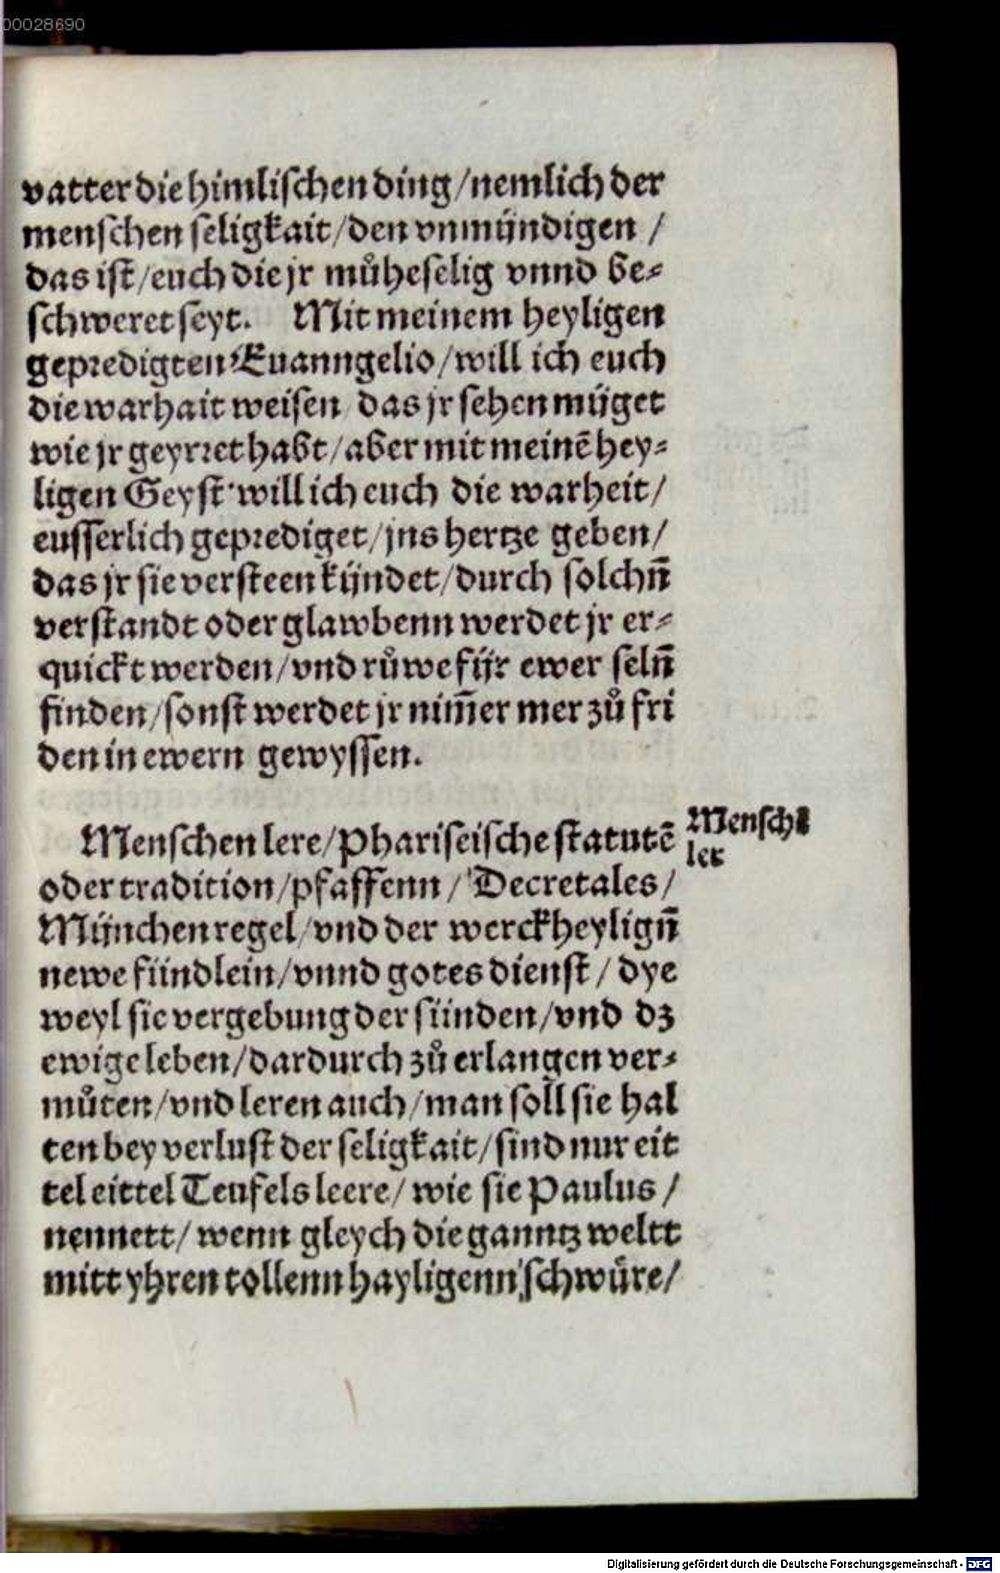 00028690
vatter die himlischen ding/nemlich der
menschen seligkait/den vnmündigen /
das ist/euch die jr müheselig vnnd be⸗
schweret seyt. Mit meinem heyligen
gepredigten Euanngelio/will ich euch
die warhait weisen/das jr sehen müget
wie jr geyrret habt/aber mit meinē hey⸗
ligen Geyst will ich euch die warheit/
eusserlich geprediget/jns hertze geben/
das jr sie versteen kündet/durch solchn̄
verstandt oder glawbenn werdet jr er⸗
quickt werden/vnd růwe für ewer seln̄
finden/sonst werdet jr nim̄er mer zů fri
den in ewern gewyssen.
Menschen lere/Phariseische statutē
oder tradition/pfaffenn/ Decretales/
München regel/vnd der werckheylign̄
newe fündlein/vnnd gotes dienst/ dye
weyl sie vergebung der sünden/vnd dz
ewige leben/dardurch zů erlangen ver⸗
můten/vnd leren auch/man soll sie hal
ten bey verlust der seligkait/sind nur eit
tel eittel Teufels leere/ wie sie Paulus /
nennett/ wenn gleych die ganntz weltt
mitt yhren tollenn hayligenn schwüre/
Mensch
ler
Digitalisierung gefördert durch die Deutsche Forschungsgemeinschaft - DFG